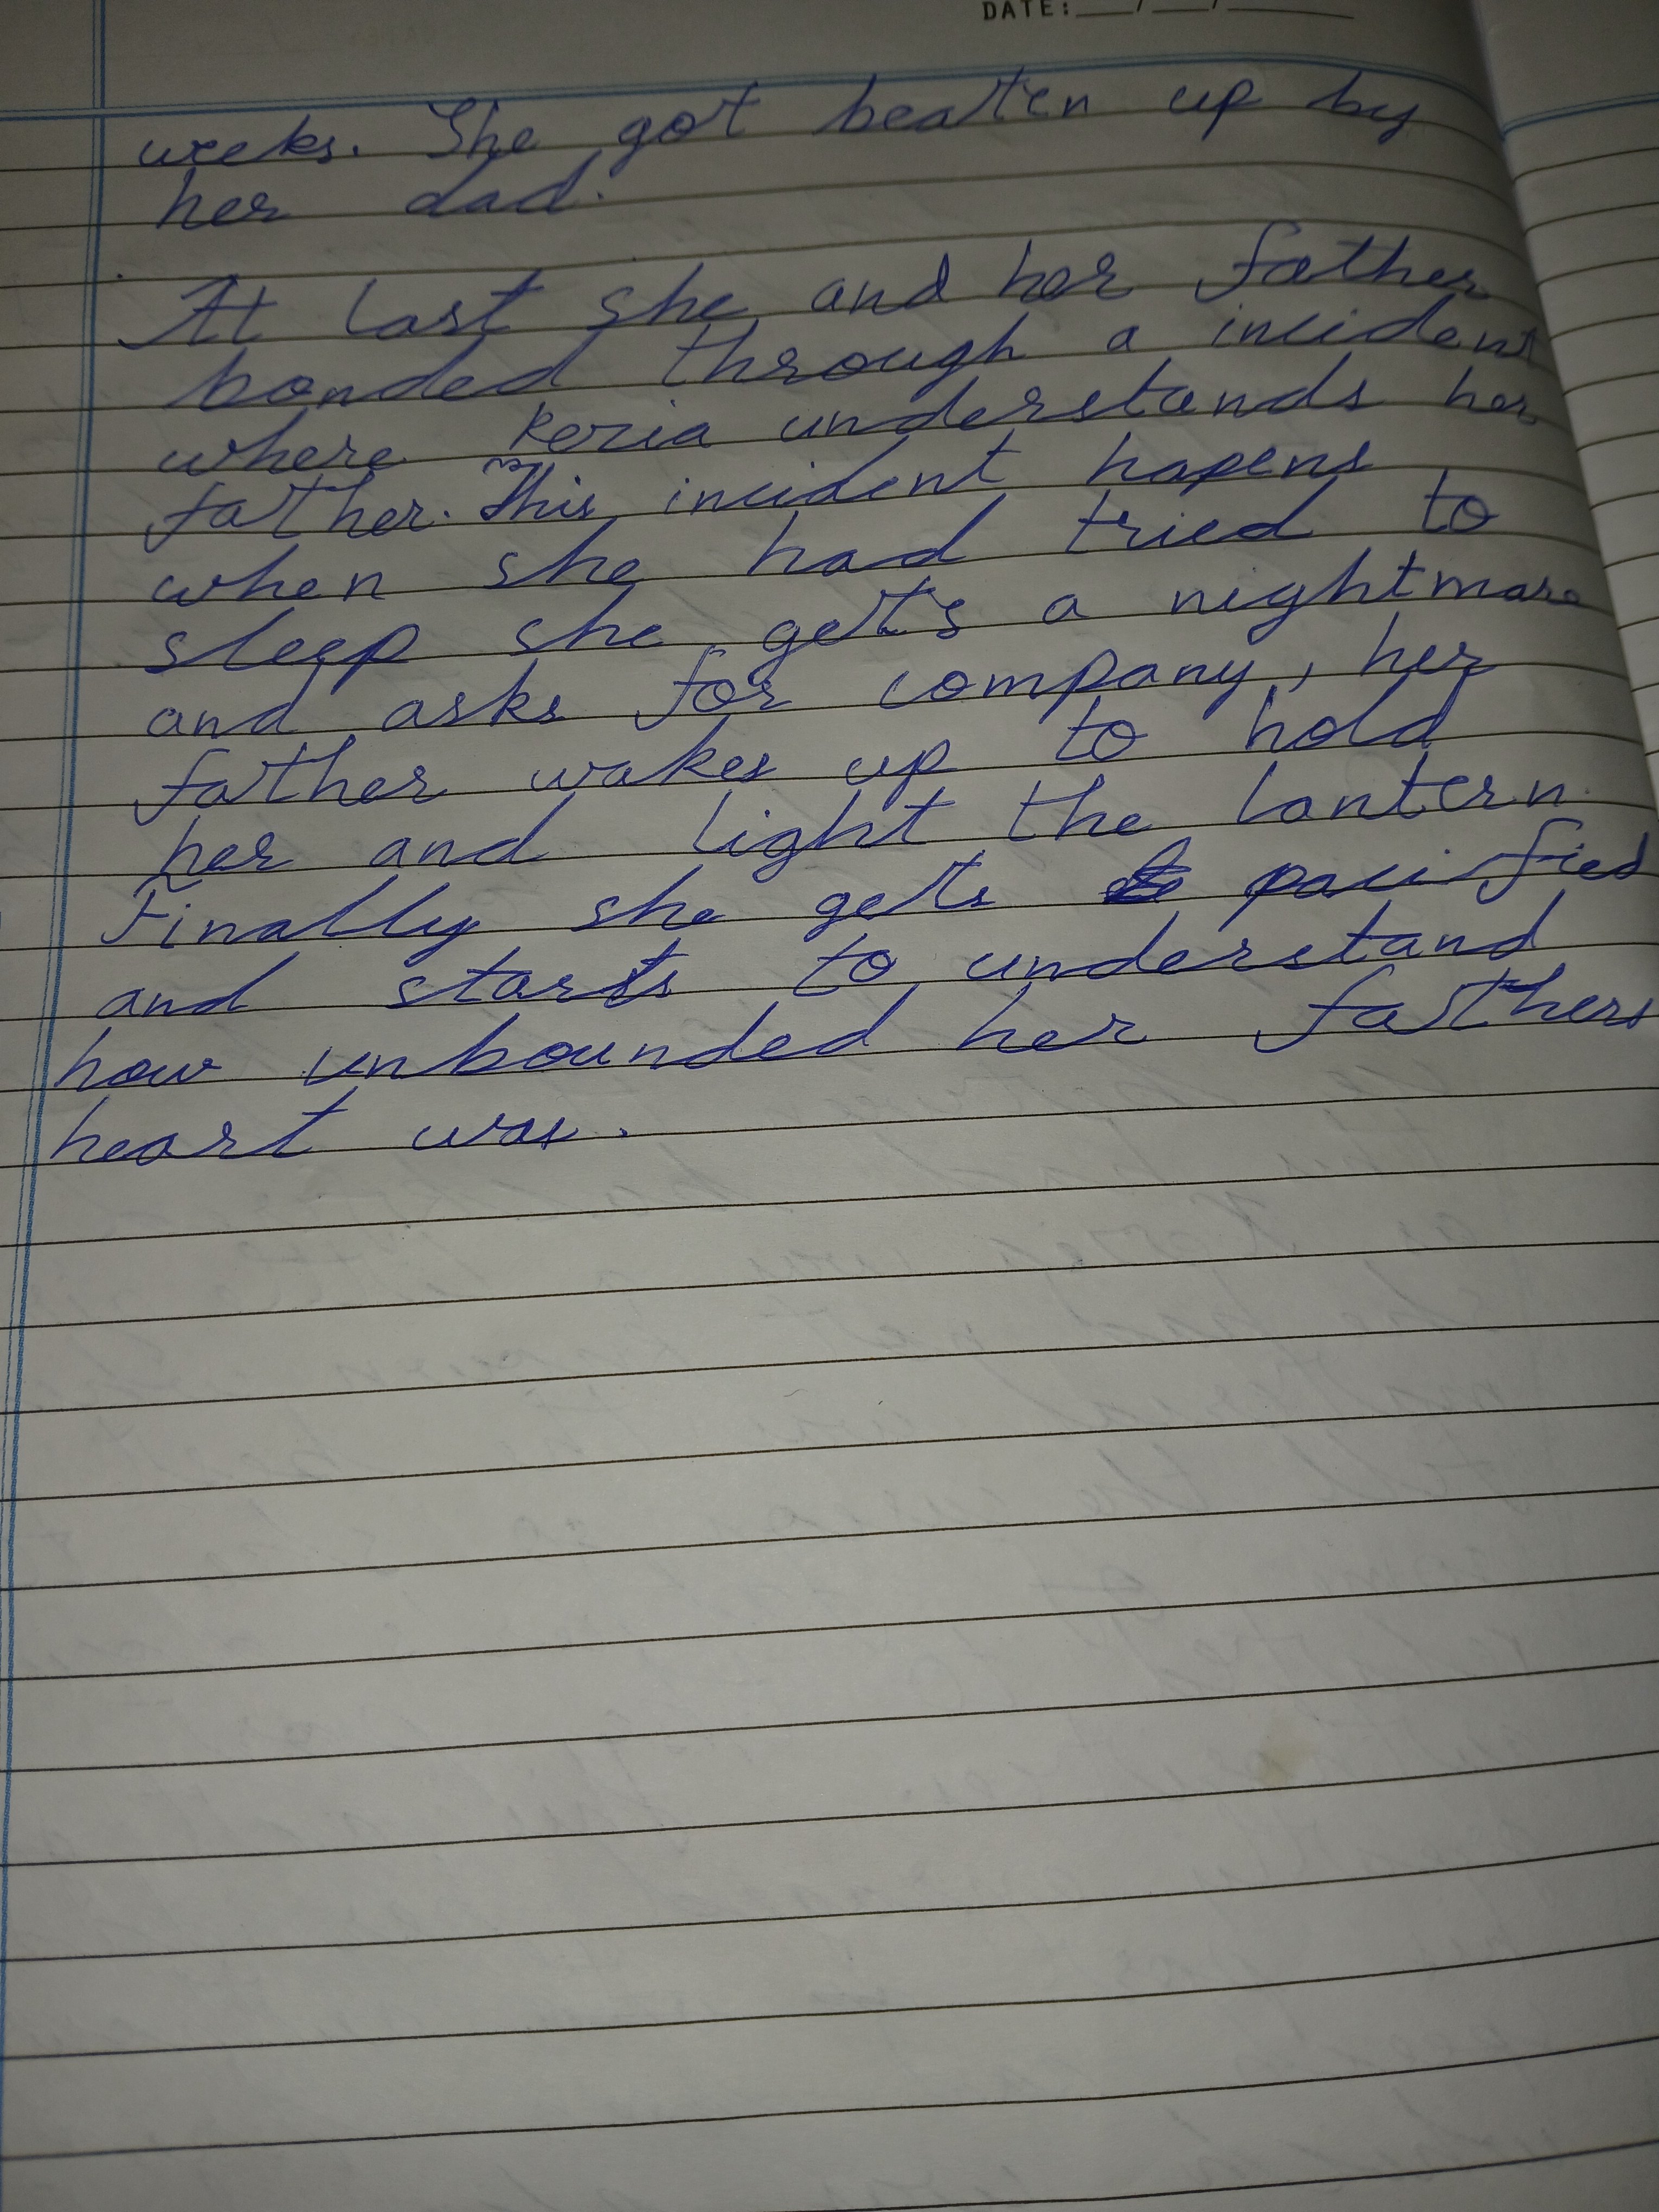 DATE: __/__/____
weeks. She got beaten up by
her dad.
At last she and her father
bonded through a incident
where Kezia understands her
father. This incident hapens
when she had tried to
sleep she gets a nightmare
and asks for company, her
father wakes up to hold
her and light the lantern.
Finally she gets pacified
and starts to understand
how unbounded her fathers
heart was.